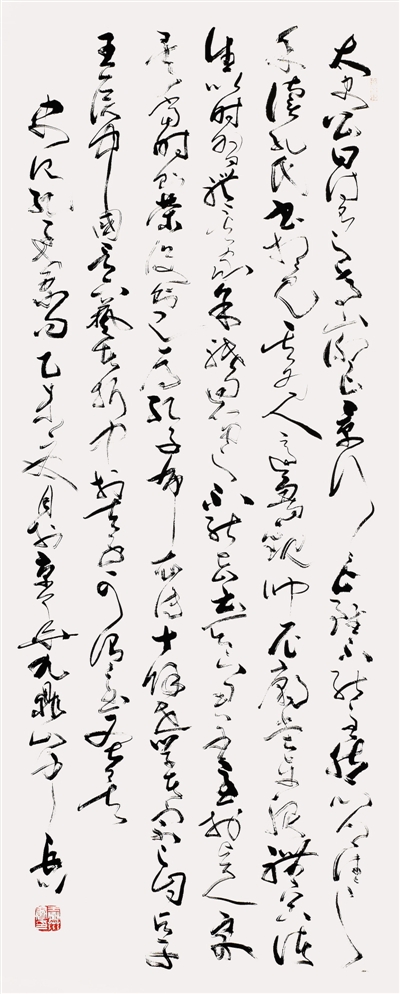 太史公曰詩有之高山仰止景行行止雖不能至然心鄉往之
余讀孔氏書想見其為人適魯觀仲尼廟堂車服禮器諸
生以時習禮其家余祗回留之不能去云天下君王至於賢人衆
矣當時則榮沒則已焉孔子布衣傳十餘世學者宗之自天子
王侯中國言六藝者折中於夫子可謂至聖矣
史記孔子世家 乙未夏月於京九鼎山